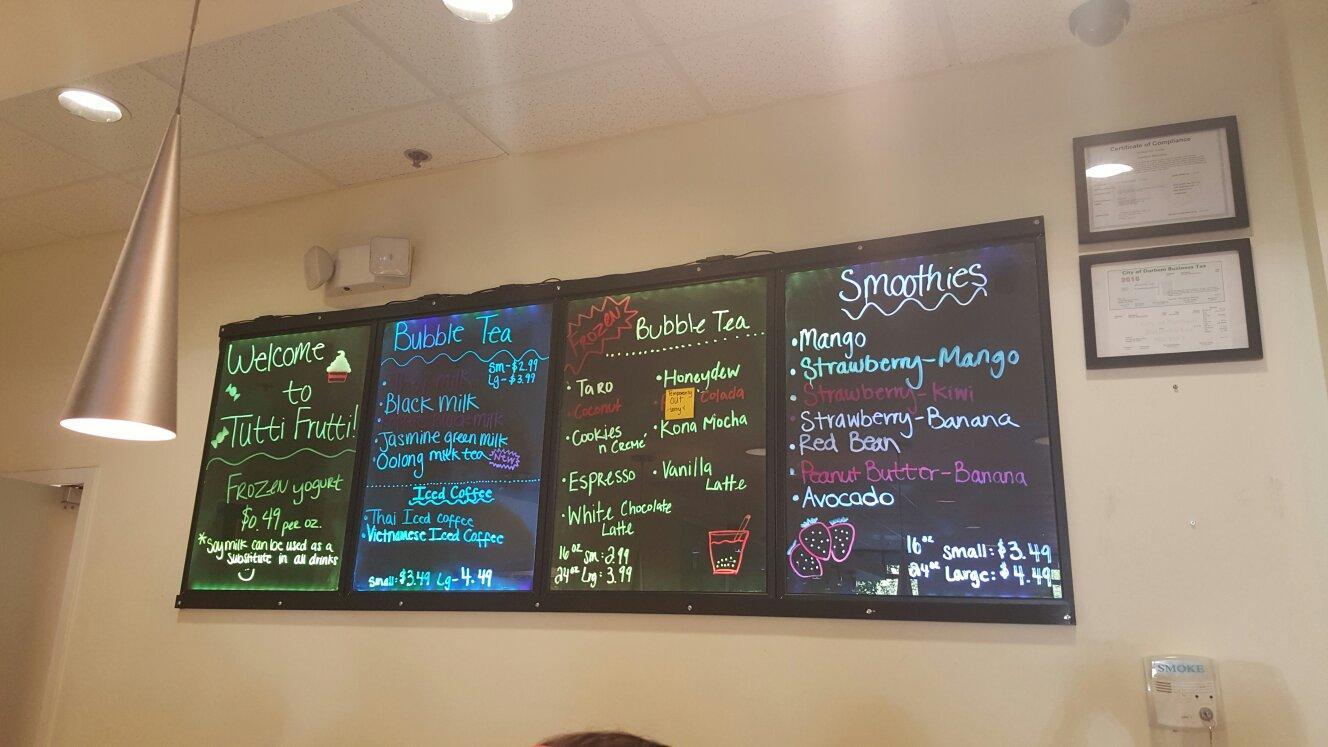 Welcome
to
Tutti Frutti!
Frozen yogurt
$0.49 per oz.
*Soymilk can be used as a
substitute in all drinks
Bubble Tea
Sm-$2.99
Lg-$3.99
milk
• Black milk
milk
• Jasmine green milk
• Oolong milk tea New!
Iced Coffee
• Thai Iced coffee
• Vietnamese Iced Coffee
Small: $3.49 Lg- 4.49
FROZEN
Bubble Tea
• Taro
• Coconut
• Cookies
n Creme'
• Espresso
• White Chocolate
Latte
• Honeydew
Colada
Temporarily
OUT
sorry!
• Kona Mocha
• Vanilla
Latte
16oz Sm: 2.99
24oz Lrg: 3.99
Smoothies
• Mango
• Strawberry-Mango
• Strawberry-Kiwi
• Strawberry-Banana
• Red Bean
• Peanut Butter-Banana
• Avocado
16oz Small: $3.49
24oz Large: $4.49
Certificate of Compliance
City of Durham Business Tax
SMOKE